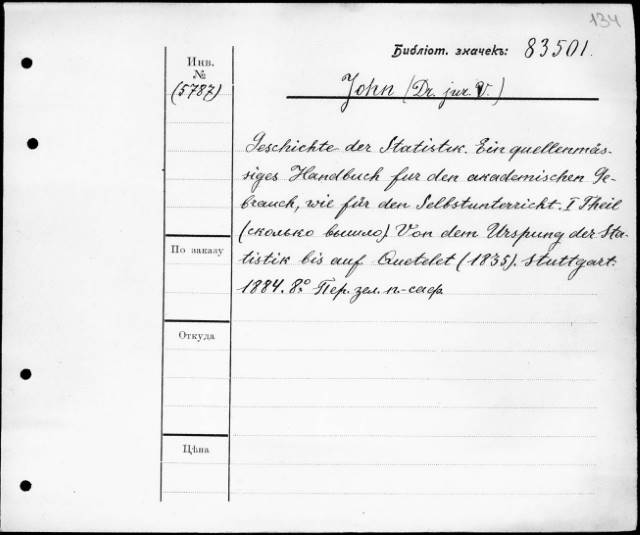 134
Библіот. значекъ: 83501.
Инв.
№
(5787)
John (Dr. jur. V.)
Geschichte der Statistik. Ein quellenmäs-
siges Handbuch fur den akademischen Ge-
brauch, wie für den Selbstunterricht. I Theil
(сколько вышло) Von dem Urspung der Sta-
tistik bis auf Quetelet (1835). Stuttgart.
1884. 8º. Пер. зел. п.-саф.
По заказу
Откуда
Цѣна